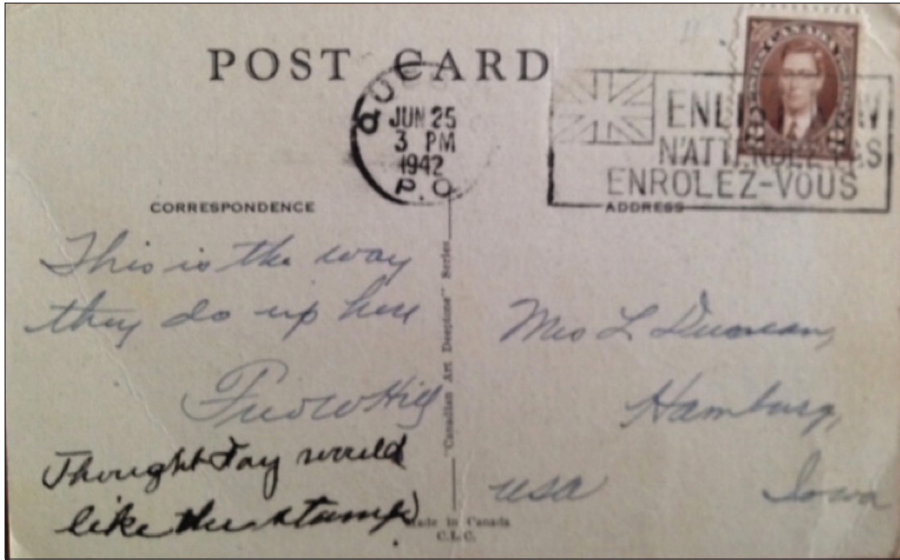 POST CARD
CANADA
JUN 25
3 PM
1942
P.Q.
N'ATTENDEZ PAS
ENROLEZ-VOUS
CORRESPONDENCE
ADDRESS
This is the way
they do up here
Thought Fay would
like the stamp
"Canadian Art Deeptone" Series
Made in Canada
C.L.C.
Mrs L Duncan,
Hamburg,
USA Iowa